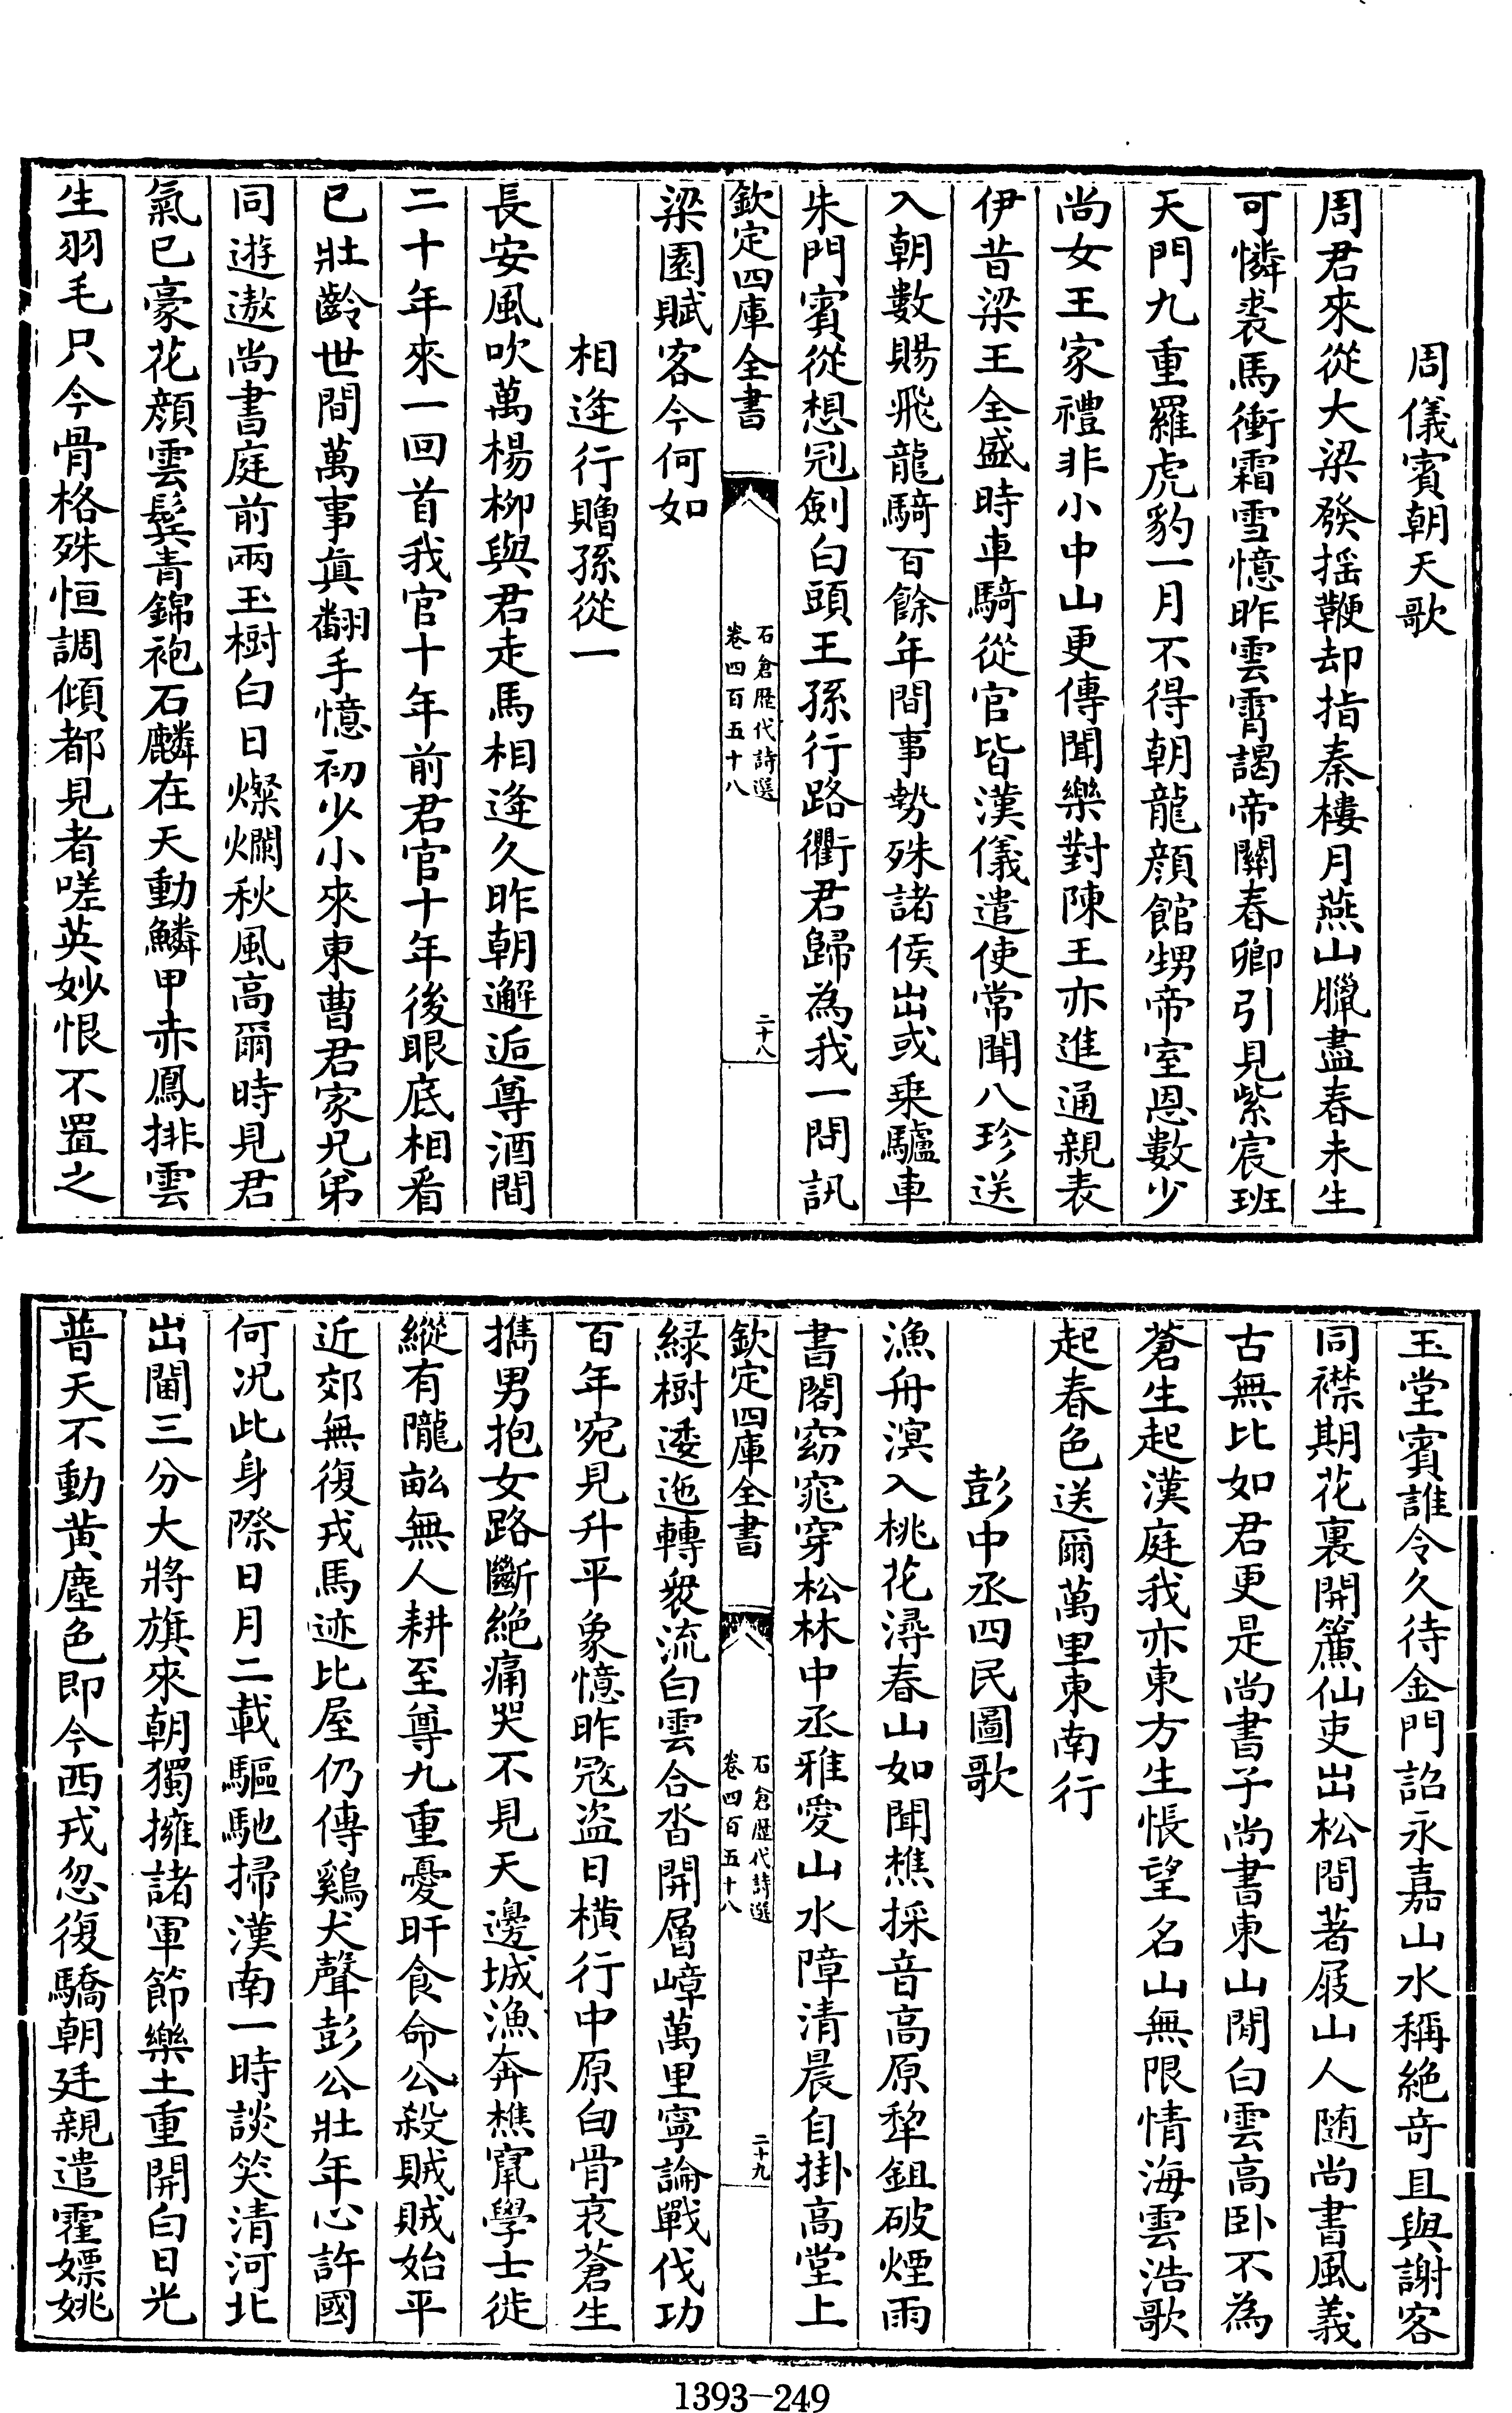 周儀賓朝天歌
周君來從大梁發揺鞭却指秦樓月燕山臘盡春未生
可憐裘馬衝霜雪憶昨雲霄謁帝關春卿引見紫宸班
天門九重羅虎豹一月不得朝龍顔館甥帝室恩數少
尚女王家禮非小中山更傳聞樂對陳王亦進通親表
伊昔梁王全盛時車騎從官皆漢儀遣使常聞八珍送
入朝數賜飛龍騎百餘年間事勢殊諸侯出或乗驢車
朱門賓從想冠劍白頭王孫行路衢君歸為我一問訊
欽定四庫全書
石倉歴代詩選
卷四百五十八
二十八
梁園賦客今何如
相逄行贈孫從一
長安風吹萬楊柳與君走馬相逄久昨朝邂逅尊酒間
二十年來一回首我官十年前君官十年後眼底相看
已壯齡世間萬事真翻手憶初少小來東曹君家兄弟
同遊遨尚書庭前兩玉樹白日燦爛秋風高爾時見君
氣已豪花顔雲鬂青錦袍石麟在天動鱗甲赤鳳排雲
生羽毛只今骨格殊恒調傾都見者嗟英妙恨不置之
玉堂賓誰令久待金門詔永嘉山水稱絶竒且與謝客
同襟期花裏開簾仙吏出松間著屐山人随尚書風義
古無比如君更是尚書子尚書東山閒白雲髙卧不為
蒼生起漢庭我亦東方生悵望名山無限情海雲浩歌
起春色送爾萬里東南行
彭中丞四民圖歌
漁舟溟入桃花潯春山如聞樵採音高原犂鉏破煙雨
書閣窈窕穿松林中丞雅愛山水障清晨自掛高堂上
緑樹逶迤轉衆流白雲合沓開層嶂萬里寧論戰伐功
百年宛見升平象憶昨冦盗日横行中原白骨哀蒼生
擕男抱女路斷絶痛哭不見天邊城漁奔樵竄學士徙
縱有隴畝無人耕至尊九重憂旰食命公殺賊賊始平
近郊無復戎馬迹比屋仍傳鷄犬聲彭公壯年心許國
何况此身際日月二載驅馳掃漢南一時談笑清河北
出閫三分大將旗來朝獨擁諸軍節樂土重開白日光
普天不動黄塵色即今西戎忽復驕朝廷親遣霍嫖姚
欽定四庫全書
石倉歴代詩選
卷四百五十八
二十九
1393-249